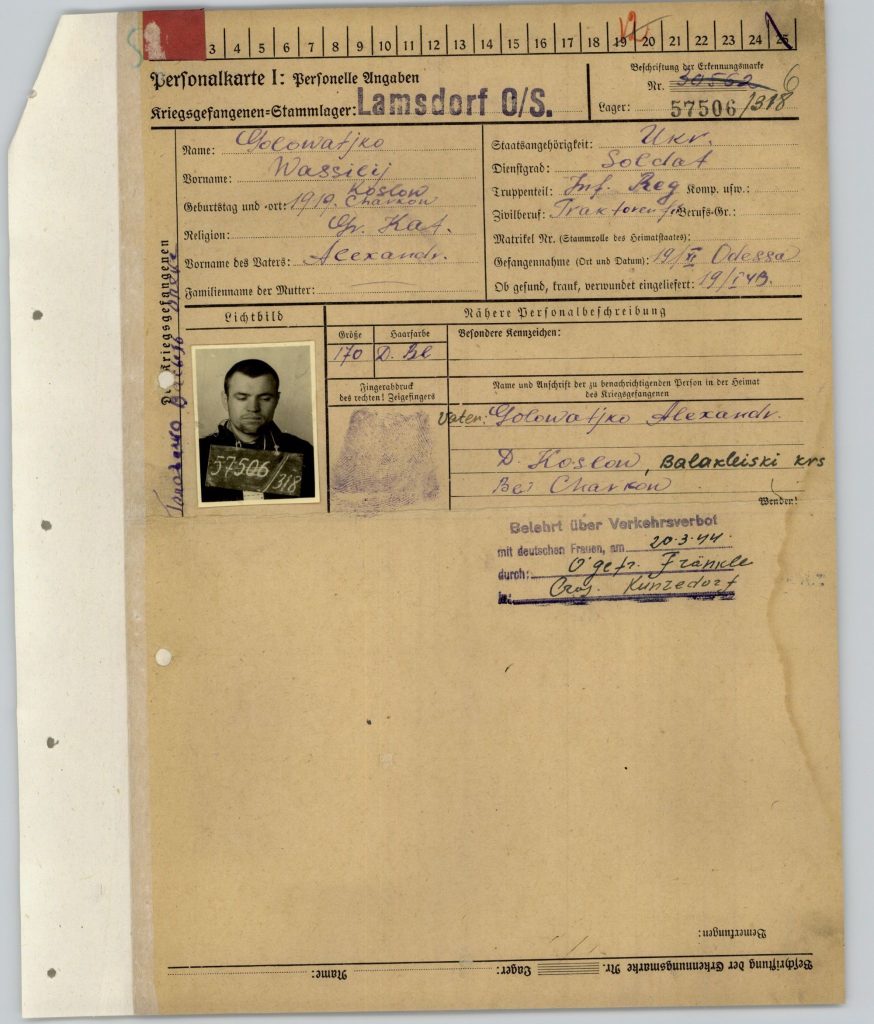 3 4 5 6 7 8 9 10 11 12 13 14 15 16 17 18 19 20 21 22 23 24 25
12
Personalkarte I: Personelle Angaben
Kriegsgefangenen-Stammlager: Lamsdorf O/S.
Beschriftung der Erkennungsmarke
Nr. 30562
6
Lager: 57506/318
Des Kriegsgefangenen
Name: Golowatjko
Vorname: Wassilij
Geburtstag und -ort: 1910. Koslow Charkow
Religion: Gr. Kat.
Vorname des Vaters: Alexandr.
Familienname der Mutter: —
Staatsangehörigkeit: Ukr.
Dienstgrad: Soldat
Truppenteil: Inf. Reg Komp. usw.:
Zivilberuf: Berufs-Gr.:
Matrikel Nr. (Stammrolle des Heimatstaates):
Gefangennahme (Ort und Datum): Odessa
Ob gesund, krank, verwundet eingeliefert:
Lichtbild
57506/318
Nähere Personalbeschreibung
Größe
170
Haarfarbe
D. Bl
Besondere Kennzeichen:
Fingerabdruck
des rechten! Zeigefingers
Name und Anschrift der zu benachrichtigenden Person in der Heimat
des Kriegsgefangenen
Vater: Golowatjko Alexandr.
D. Koslow, Balakleiski krs
Bei Charkow
Wenden!
Belehrt über Verkehrsverbot
mit deutschen Frauen, am 20.3.44.
durch: O'gefr. Fränkle
in: Kunzedorf
Bemerkungen:
Beschriftung der Erkennungsmarke Nr. Lager: Name: